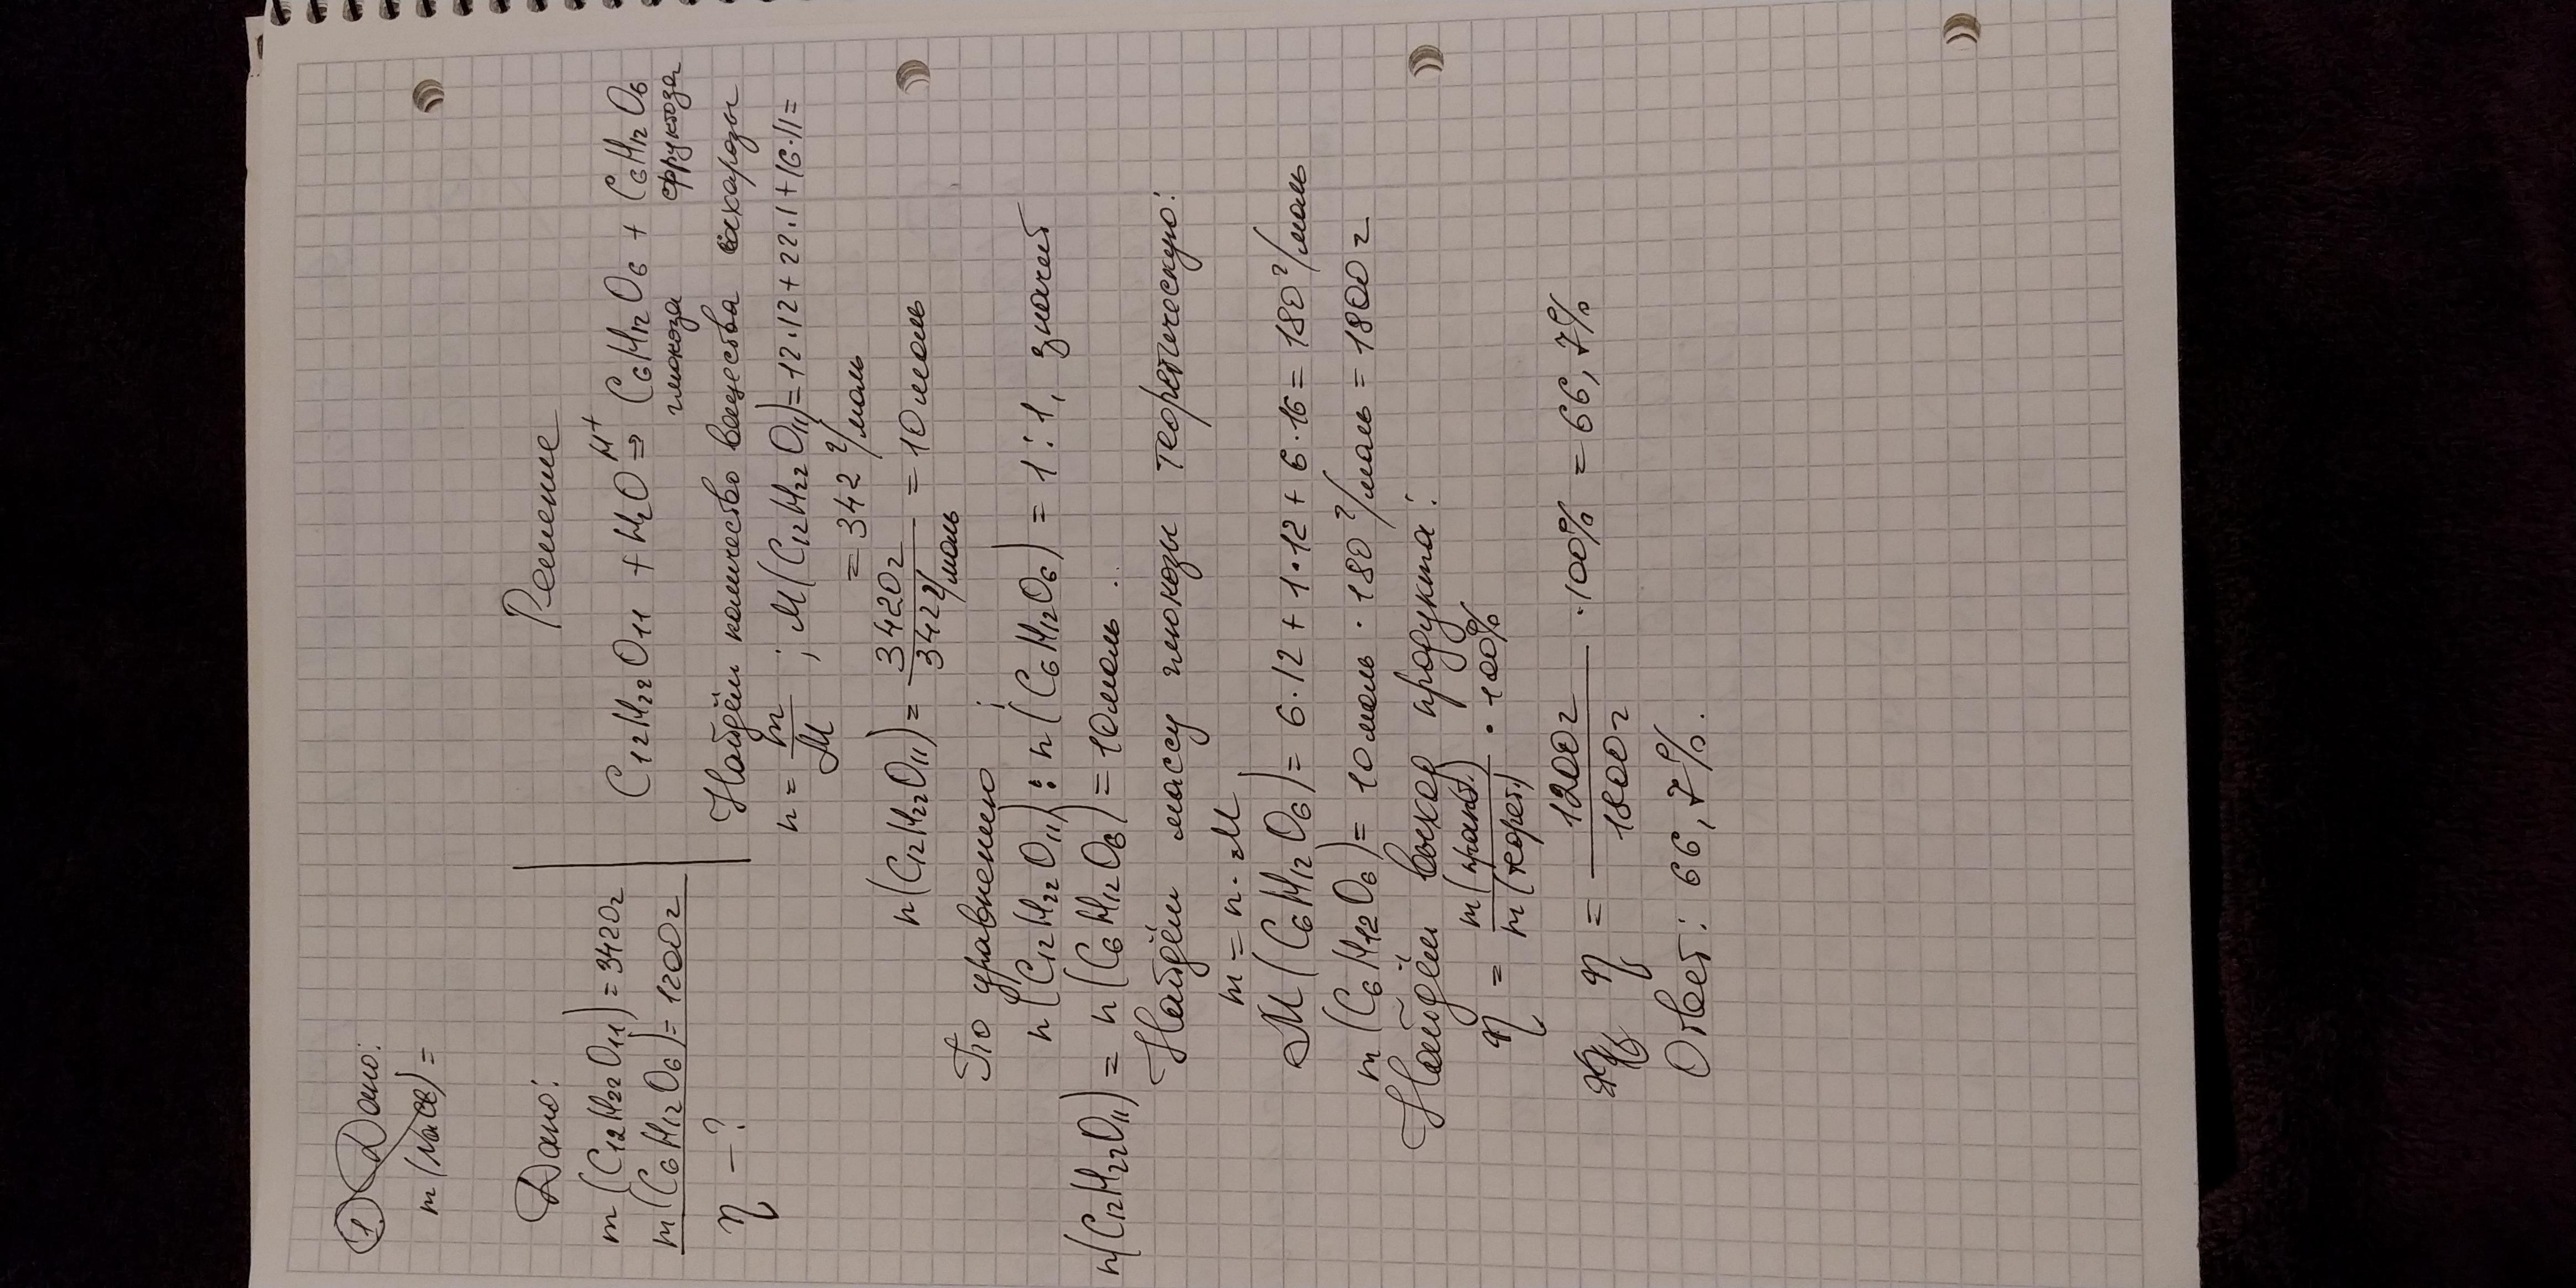 ① Дано:
m (NaCl) =
Дано:
m (C12H22O11) = 3420г
m (C6H12O6) = 1200г
η – ?
Решение
C12H22O11 + H2O H+⇒ C6H12O6 + C6H12O6
глюкоза фруктоза
Найдём количество вещества сахарозы
n = m/M ; M(C12H22O11) = 12·12 + 22·1 + 16·11 =
= 342 г/моль
n(C12H22O11) = 3420г / 342 г/моль = 10 моль
По уравнению :
n (C12H22O11) : n (C6H12O6) = 1 : 1, значит
n(C12H22O11) = n (C6H12O6) = 10 моль.
Найдём массу глюкозы теоретическую:
m = n · M
M (C6H12O6) = 6·12 + 1·12 + 6·16 = 180 г/моль
m (C6H12O6) = 10 моль · 180 г/моль = 1800 г
Найдём выход продукта:
η = m (практ.) / m (теорет) · 100%
η = 1200г / 1800г · 100% = 66,7%
Ответ: 66,7%.